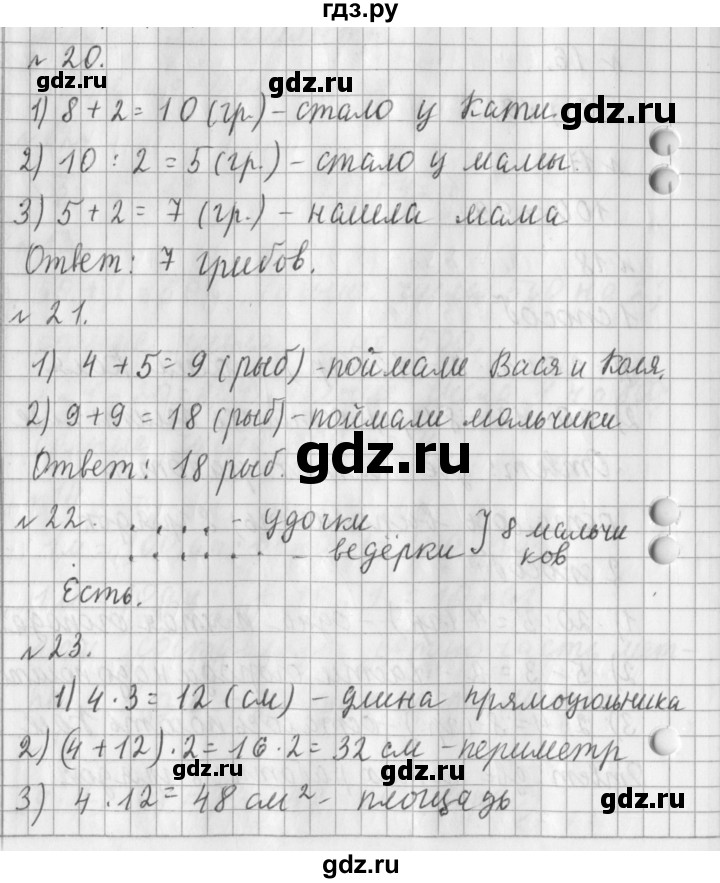 гдз.ру
№ 20.
gdz.ru
1) 8 + 2 = 10 (гр.) - стало у Кати.
gdz.ru
2) 10 : 2 = 5 (гр.) - стало у мамы.
3) 5 + 2 = 7 (гр.) - нашла мама
Ответ: 7 грибов.
№ 21.
1) 4 + 5 = 9 (рыб) - поймали Вася и Коля.
2) 9 + 9 = 18 (рыб) - поймали мальчики
Ответ: 18 рыб.
gdz.ru
№ 22. . . . . - удочки } 8 мальчи
. . . . . . - ведёрки ков
Есть.
№ 23.
1) 4 · 3 = 12 (см) - длина прямоугольника
2) (4 + 12) · 2 = 16 · 2 = 32 см - периметр
gdz.ru gdz.ru
3) 4 · 12 = 48 см² - площадь
gdz.ru
gdz.ru